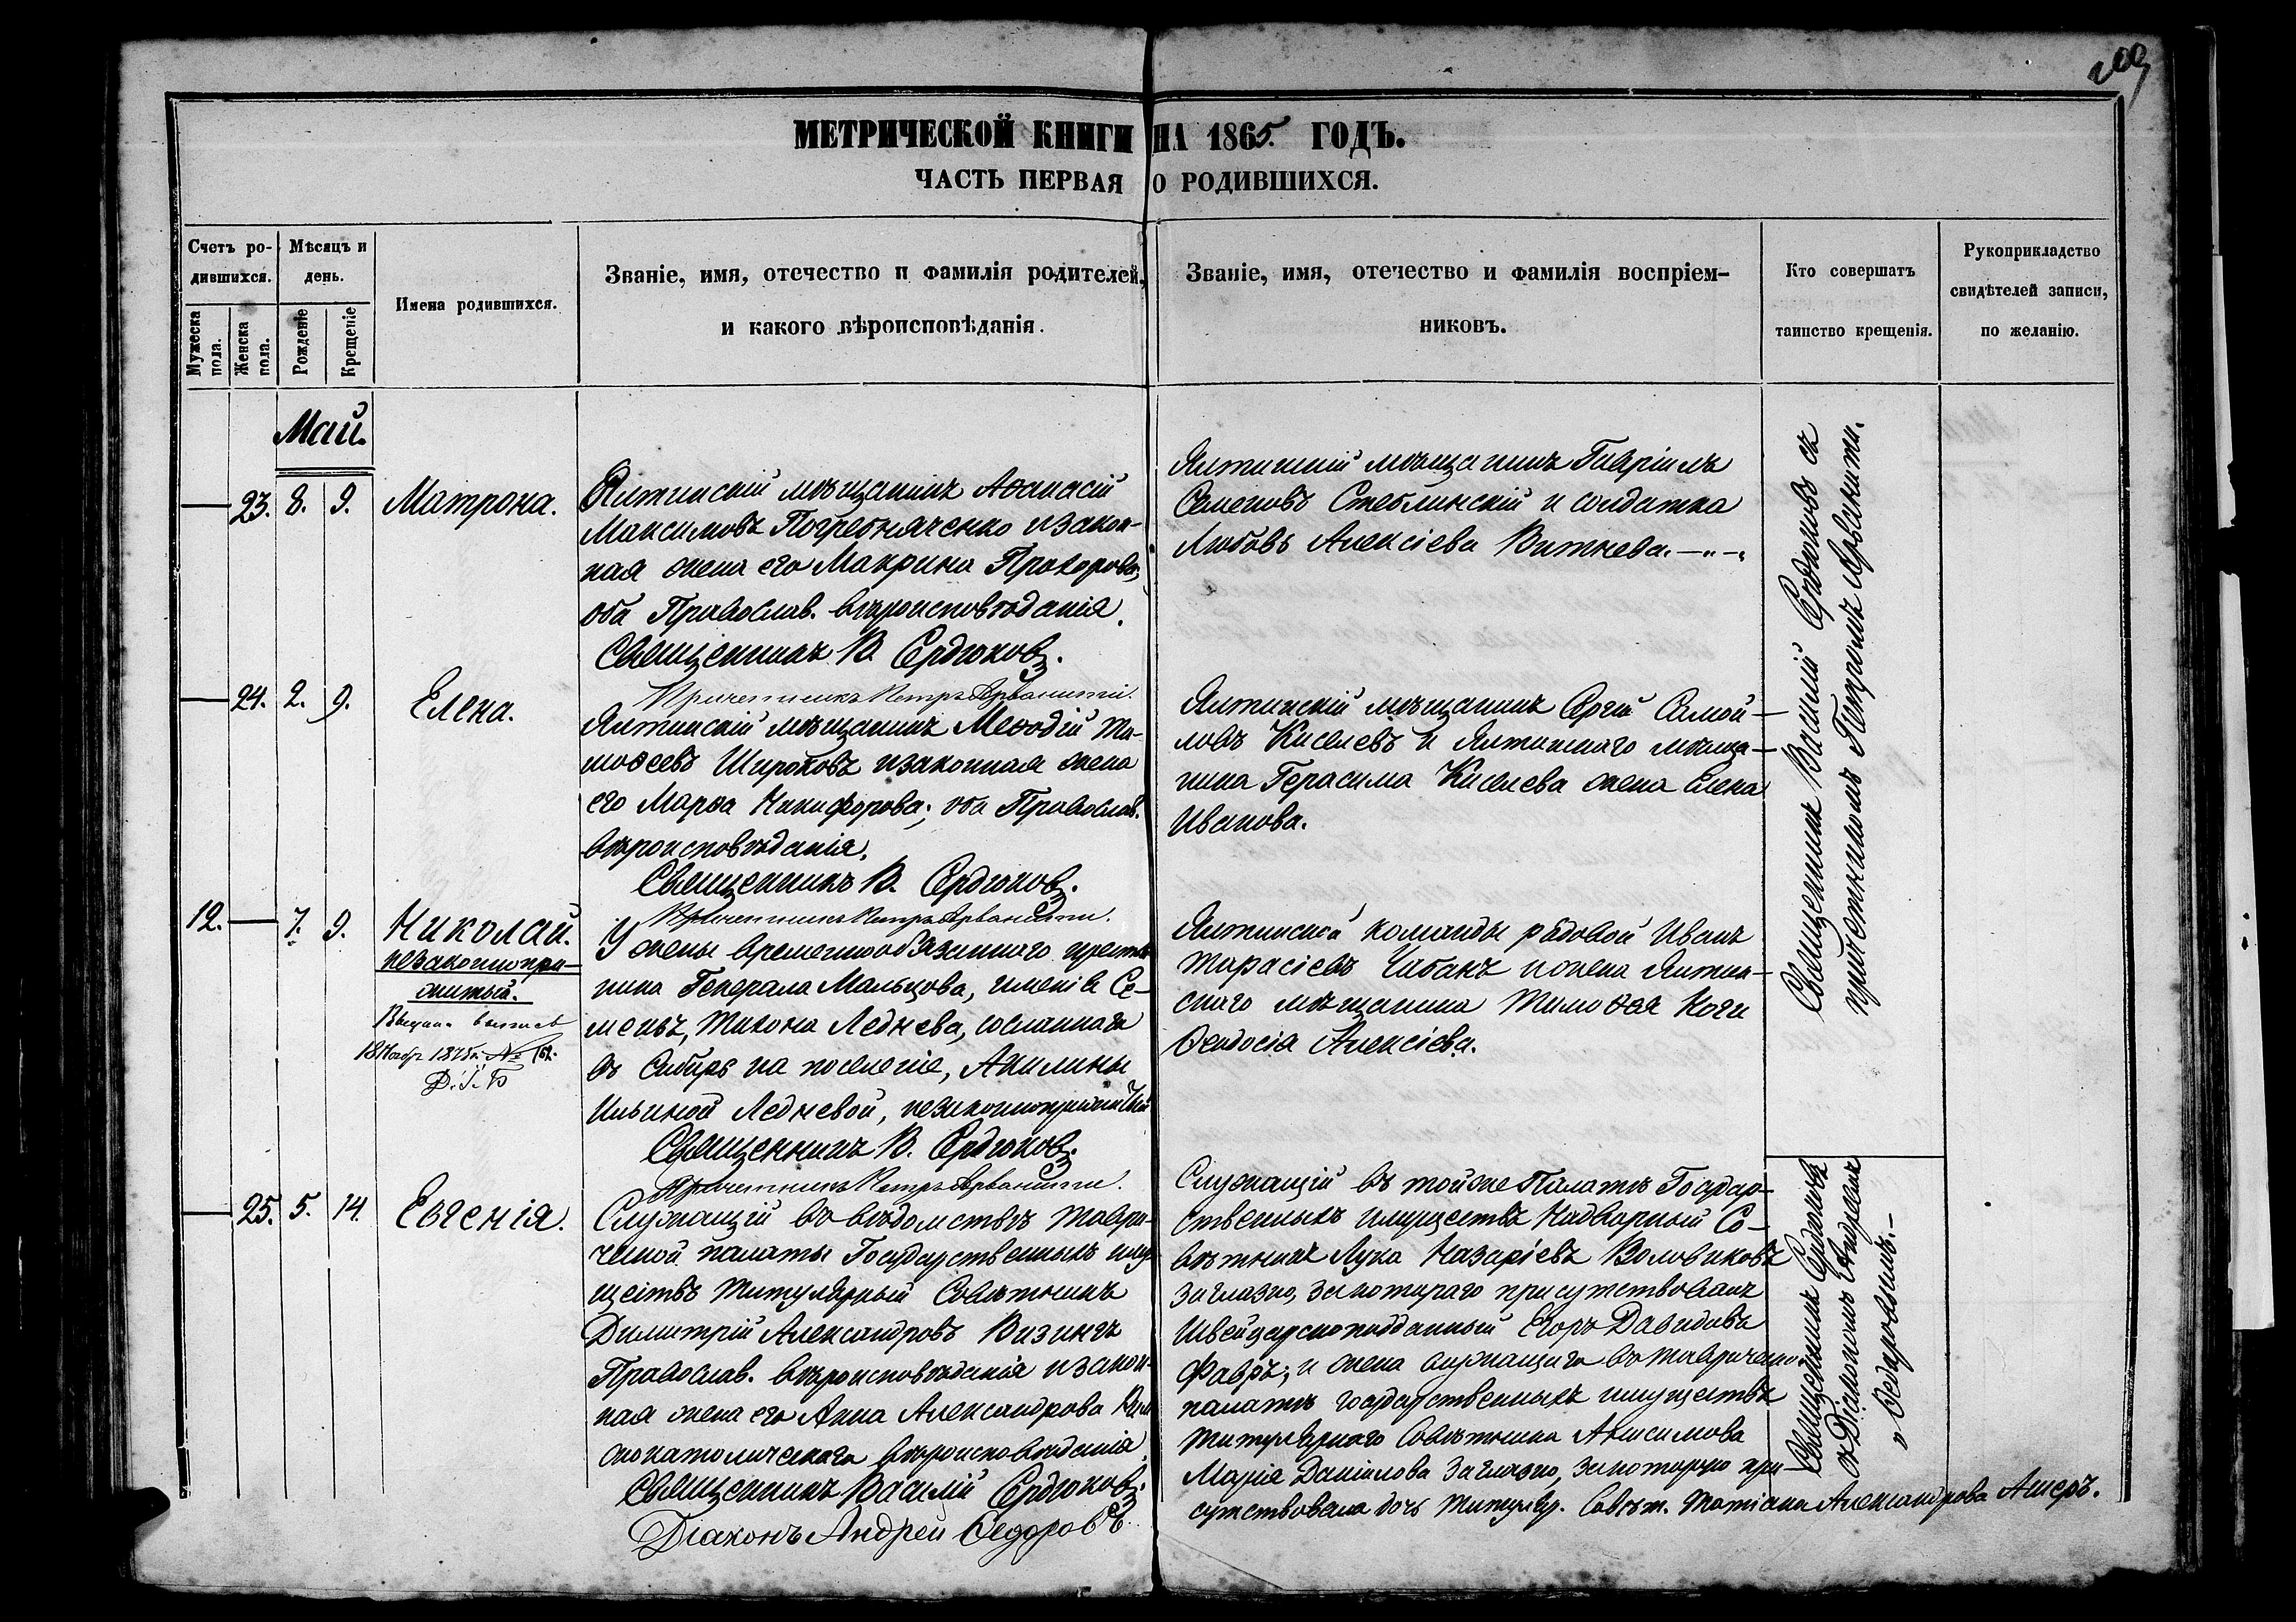 209
МЕТРИЧЕСКОЙ КНИГИ НА 1865. ГОДЪ.
ЧАСТЬ ПЕРВАЯ О РОДИВШИХСЯ.
Счетъ ро-
дившихся.
Мужеска
пола.
Женска
пола.
Мѣсяцъ и
день.
Рожденіе
Крещеніе
Имена родившихся.
Званіе, имя, отечество и фамилія родителей,
и какого вѣроисповѣданія.
Званіе, имя, отечество и фамилія воспріем-
никовъ.
Кто совершатъ
таинство крещенія.
Рукоприкладство
свидѣтелей записи,
по желанію.
Май.
— 23. 8. 9. Матрона.
Ялтинскій мѣщанинъ Аѳанасій
Максимовъ Погребняченко и закон-
ная жена его Макрина Прохорова,
оба Православ. вѣроисповѣданія.
Священникъ В. Сердюковъ.
Причетникъ Петръ Арванитти.
Ялтинскій мѣщанинъ Гавріилъ
Семеновъ Стеблинскій и солдатка
Любовь Алексіева Витнева.—„—„
— 24. 2. 9. Елена.
Ялтинскій мѣщанинъ Меѳодій Ти-
моѳеевъ Широковъ и законная жена
его Марѳа Никифорова; оба Православ.
вѣроисповѣданія.
Священникъ В. Сердюковъ.
Причетникъ Петръ Арванитти.
Ялтинскій мѣщанинъ Сергій Самой-
ловъ Киселевъ и Ялтинскаго мѣща-
нина Герасима Киселева жена Елена
Иванова.
12. — 7. 9. Николай.
незаконнопри-
житый.
18 1875 г. №
У жены временнообязаннаго крестья
нина Генерала Мальцова, имѣнія Се-
меизъ, Тихона Леднева, сосланнаго
въ Сибирь на поселеніе, Акилины
Ильиной Ледневой, незаконноприжитый
Священникъ В. Сердюковъ.
Причетникъ Петръ Арванитти.
Ялтинской команды рядовой Иванъ
Тарасіевъ Чабанъ и жена Ялтин-
скаго мѣщанина Тимоѳея Коги
Ѳеодосія Алексіева.
Священникъ Василій Сердюковъ съ
причетникомъ Петромъ Арванитти.
— 25. 5. 14. Евгенія.
Служащій въ вѣдомствѣ Таври-
ческой палаты Государственныхъ иму
ществъ Титулярный Совѣтникъ
Димитрій Александровъ Визингъ
Православ. вѣроисповѣданія и закон-
ная жена его Анна Александрова Рим
скокатолическаго вѣроисповѣданія.
Священникъ Василій Сердюковъ.
Діаконъ Андрей Ѳедоровъ.
Служащій въ той же Палатѣ Государ-
ственныхъ имуществъ Надворный Со-
вѣтникъ Лука Назаріевъ Воловиковъ
заглазно, за котораго присутствовалъ
Швейцарскоподданный Егоръ Давидовъ
Фавръ; и жена служащаго въ Таврической
палатѣ государственныхъ имуществъ
Титулярнаго Совѣтника Анисимова
Марія Даніилова заглазно, за которую при-
сутствовала дочь Титуляр. Совѣт. Татіана Александрова Ашеръ.
Священникъ Сердюковъ
съ Діакономъ Андреемъ
Ѳедоровымъ.—